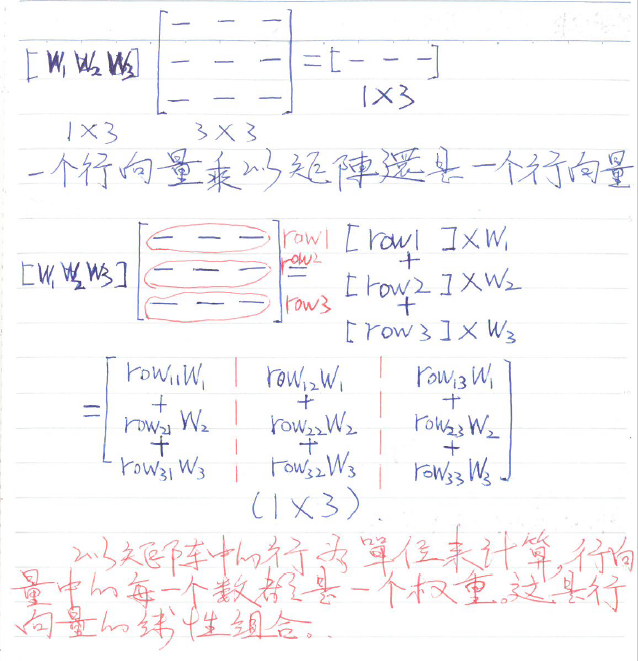 [W₁ W₂ W₃] [— — — — — — — — —] = [— — —]
1×3
1×3 3×3
一个行向量乘以矩陣還是一个行向量
[W₁ W₂ W₃] [— — — — — — — — —] row1 row2 row3 = [row1 ]×W₁
+
[row2 ]×W₂
+
[row3 ]×W₃
= [row₁₁W₁ | row₁₂W₁ | row₁₃W₁
+ + +
row₂₁W₂ | row₂₂W₂ | row₂₃W₂
+ + +
row₃₁W₃ | row₃₂W₃ | row₃₃W₃]
(1×3).
以矩阵中的行为單位来计算,行向
量中的每一个数都是一个权重。这是行
向量的线性组合。